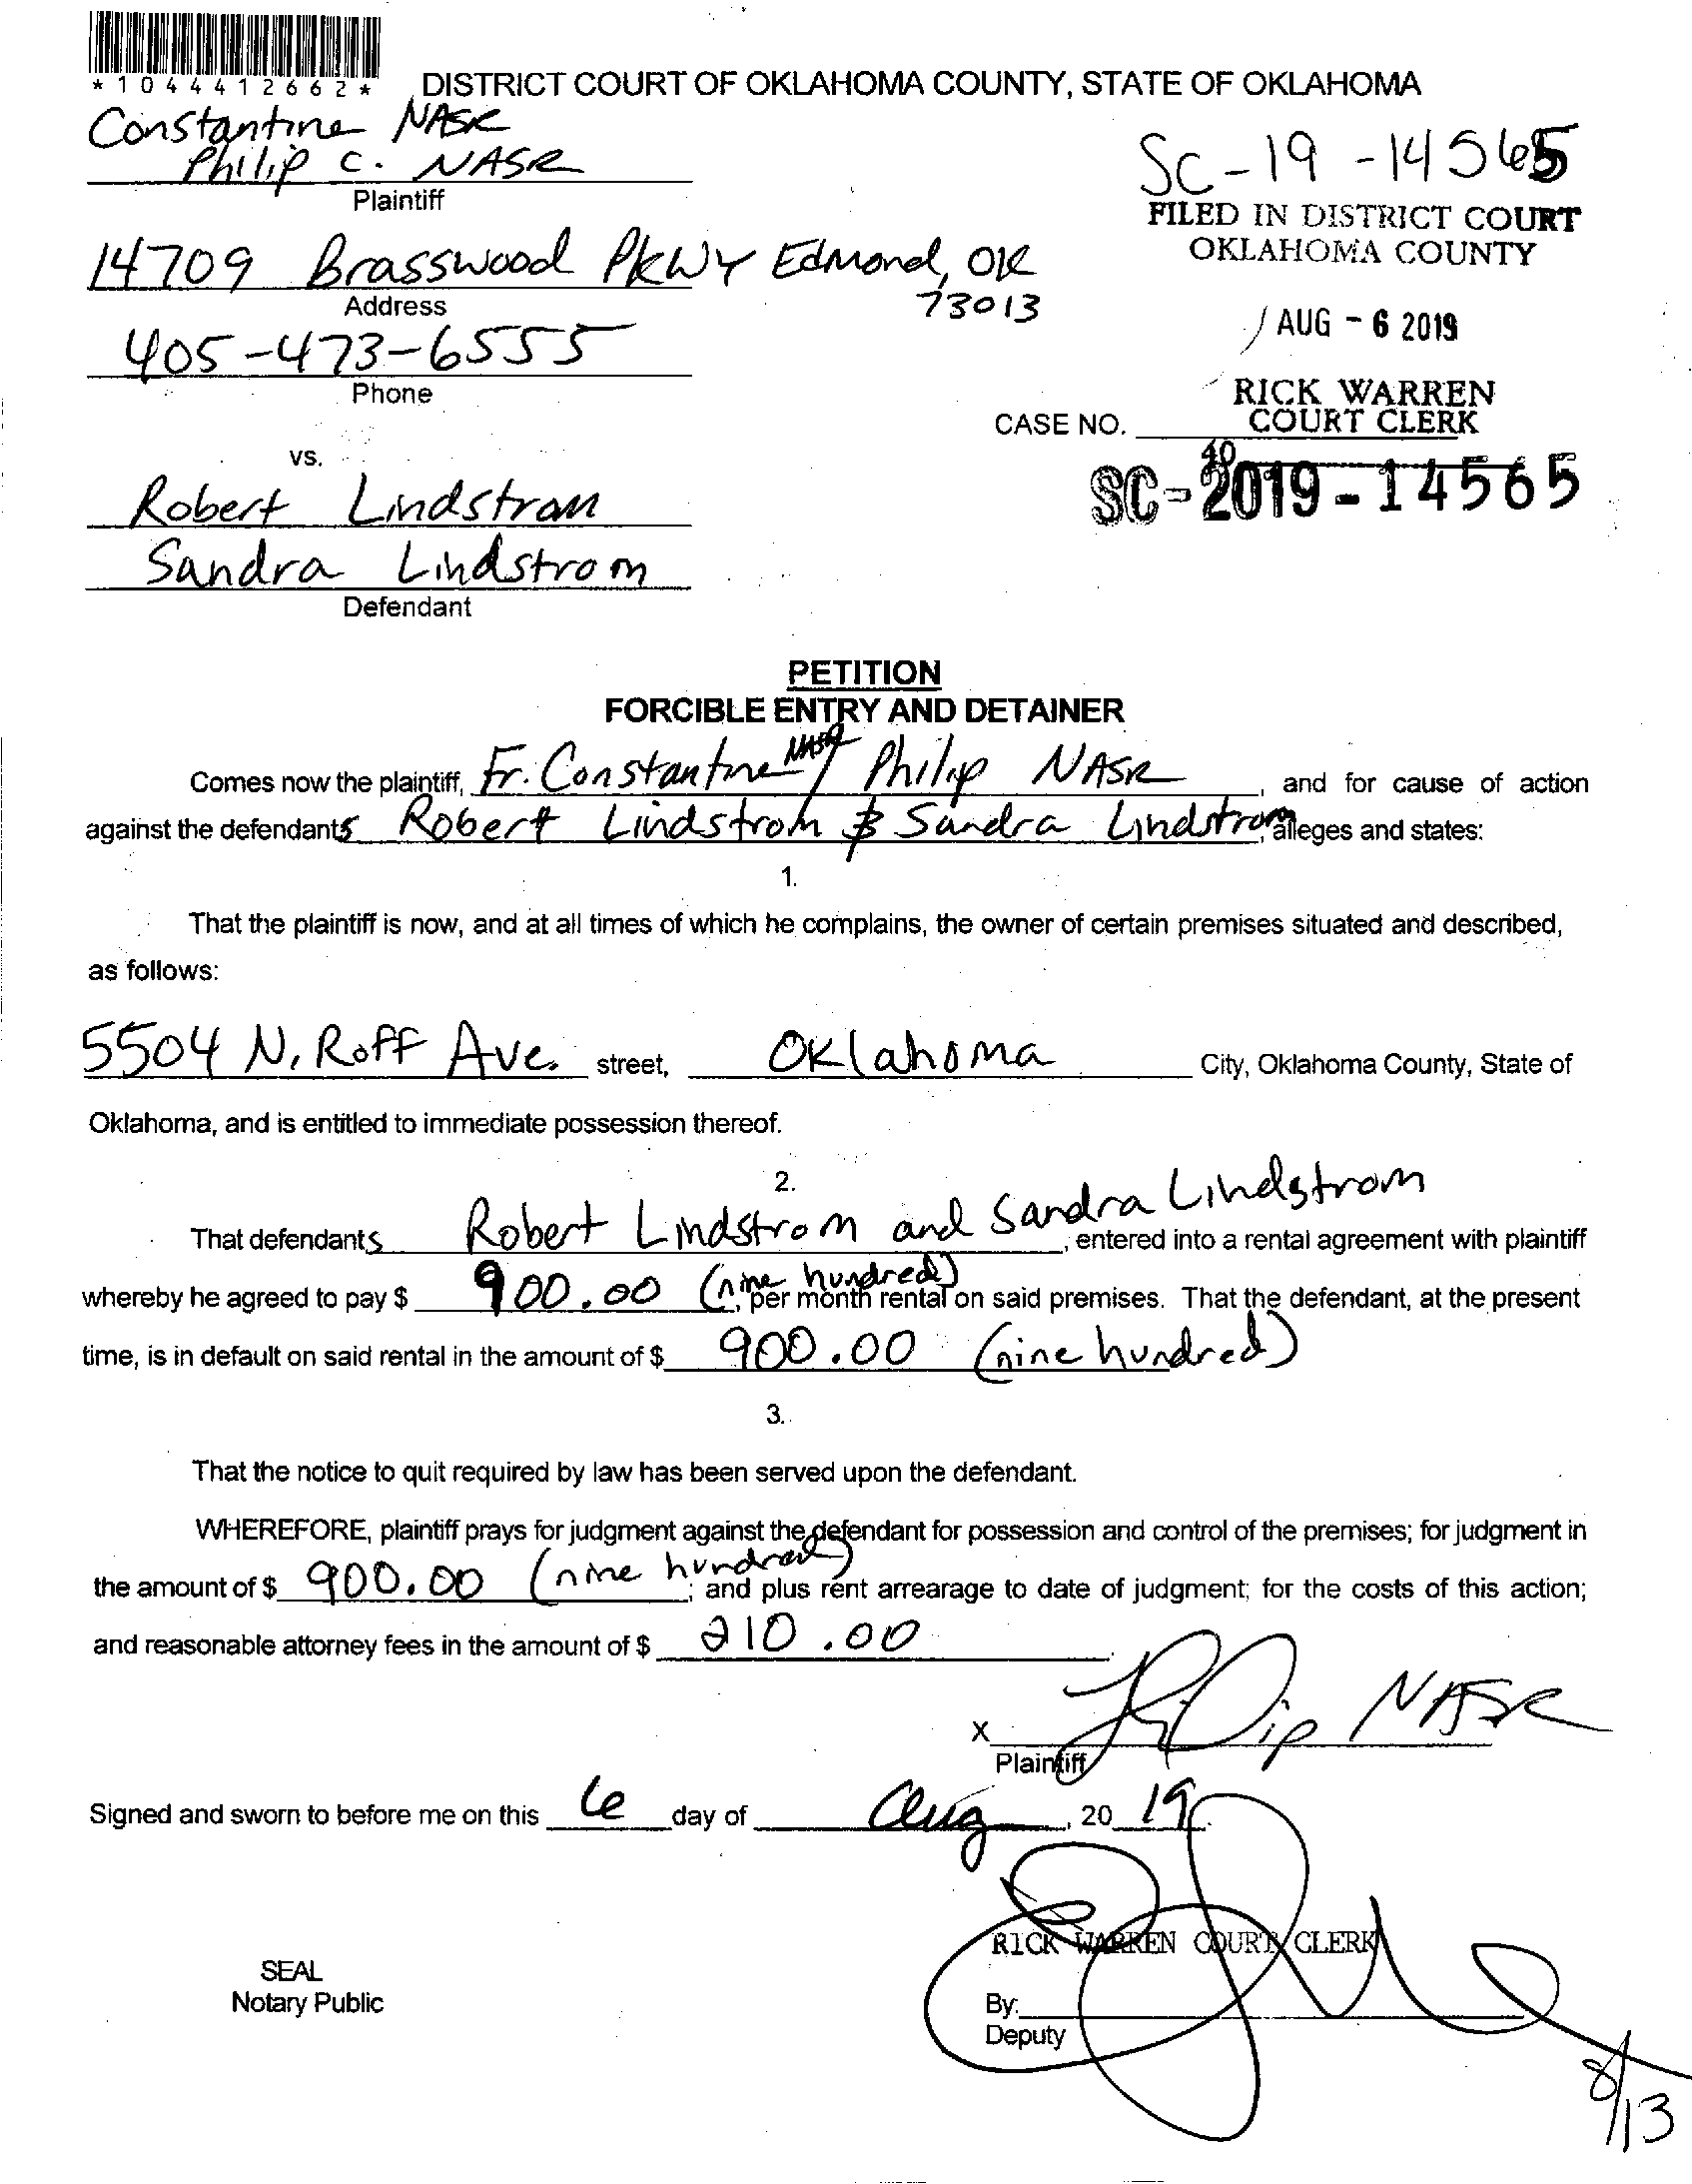 *1044412662*
DISTRICT COURT OF OKLAHOMA COUNTY, STATE OF OKLAHOMA
Constantine NASR
Philip C. NASR
Plaintiff
SC-19-14565
FILED IN DISTRICT COURT
OKLAHOMA COUNTY
14709 Brasswood PKWY Edmond, OK
73013
Address
AUG - 6 2019
405-473-6555
Phone
RICK WARREN
COURT CLERK
CASE NO.
40
vs.
SC-2019-14565
Robert Lindstrom
Sandra Lindstrom
Defendant
PETITION
FORCIBLE ENTRY AND DETAINER
Comes now the plaintiff, Fr. Constantine NASR / Philip NASR, and for cause of action
against the defendants Robert Lindstrom & Sandra Lindstrom, alleges and states:
1.
That the plaintiff is now, and at all times of which he complains, the owner of certain premises situated and described,
as follows:
5504 N. Roff Ave. street, Oklahoma City, Oklahoma County, State of
Oklahoma, and is entitled to immediate possession thereof.
2.
That defendants Robert Lindstrom and Sandra Lindstrom, entered into a rental agreement with plaintiff
whereby he agreed to pay $ 900.00 (nine hundred), per month rental on said premises. That the defendant, at the present
time, is in default on said rental in the amount of $ 900.00 (nine hundred)
3.
That the notice to quit required by law has been served upon the defendant.
WHEREFORE, plaintiff prays for judgment against the defendant for possession and control of the premises; for judgment in
the amount of $ 900.00 (nine hundred); and plus rent arrearage to date of judgment; for the costs of this action;
and reasonable attorney fees in the amount of $ 210.00.
X Philip NASR
Plaintiff
Signed and sworn to before me on this 6 day of Aug, 20 19.
RICK WARREN COURT CLERK
SEAL
Notary Public
By:
Deputy
8/13